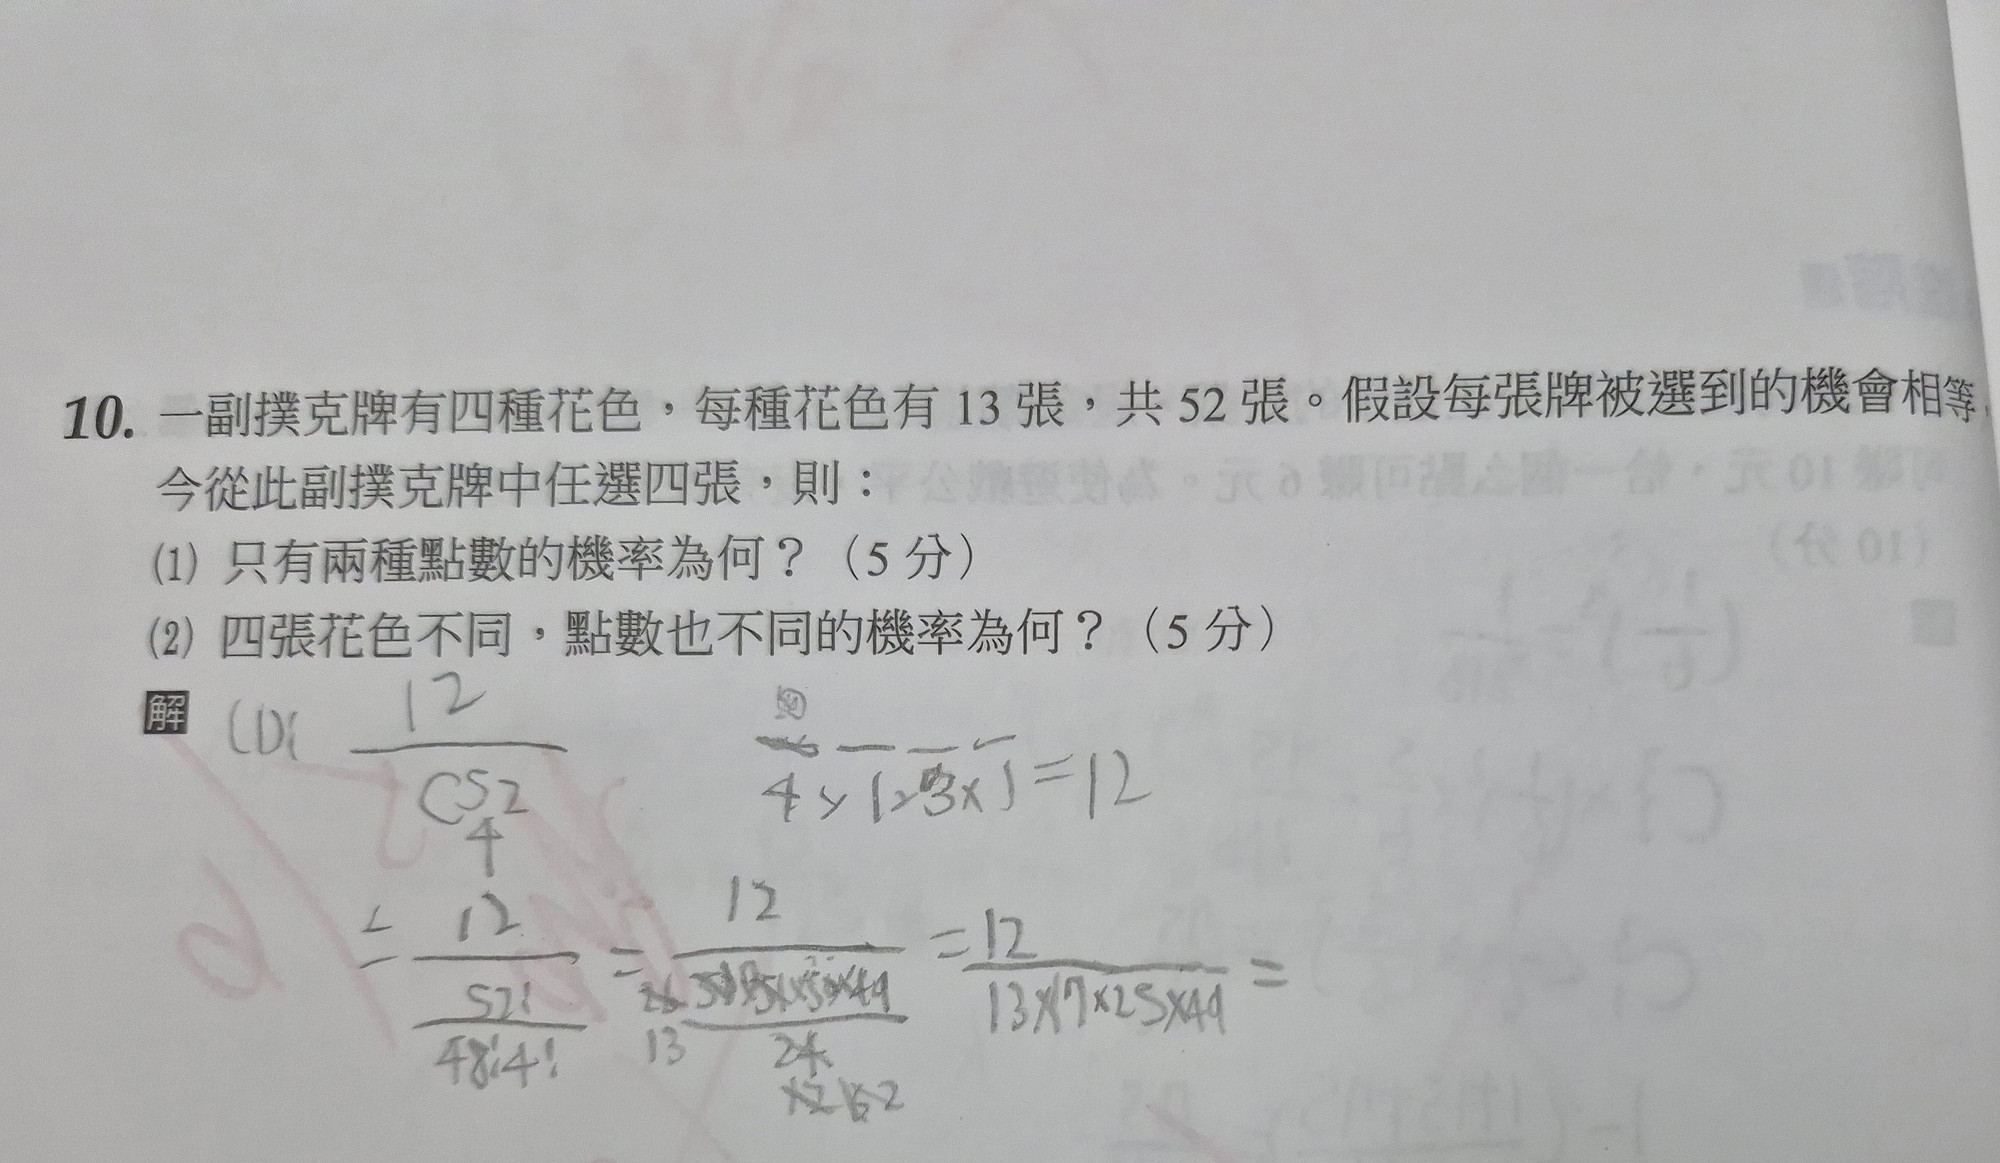 10. 一副撲克牌有四種花色，每種花色有 13 張，共 52 張。假設每張牌被選到的機會相等，
今從此副撲克牌中任選四張，則：
(1) 只有兩種點數的機率為何？（5 分）
(2) 四張花色不同，點數也不同的機率為何？（5 分）
解 (1)
12
C52
4
4×1×3×1=12
= 12
52!
48!4!
= 12
24
13
= 12
13×17×25×49
=